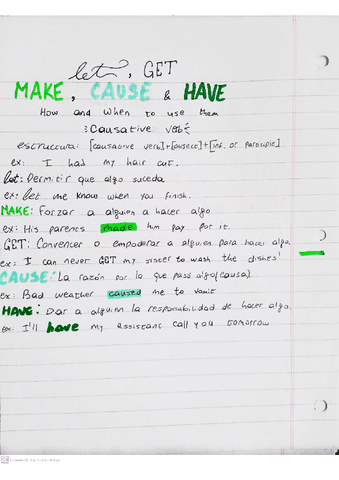 let, GET
MAKE, CAUSE & HAVE
How and when to use them
Causative verb
estructura: [causative verb]+[orsece]+[inf. or participle]
ex: I had my hair cut.
let: Permitir que algo suceda
ex: let me know when you finish.
MAKE: Forzar a alguien a hacer algo
ex: His parents made him pay for it.
GET: Convencer o empoderar a alguien para hacer algo.
ex: I can never GET my sister to wash the dishes!
CAUSE: La razón por la que pasa algo (causa).
ex: Bad weather caused me to vomit
HAVE: Dar a alguien la responsabilidad de hacer algo.
ex: I'll have my assistant call you tomorrow